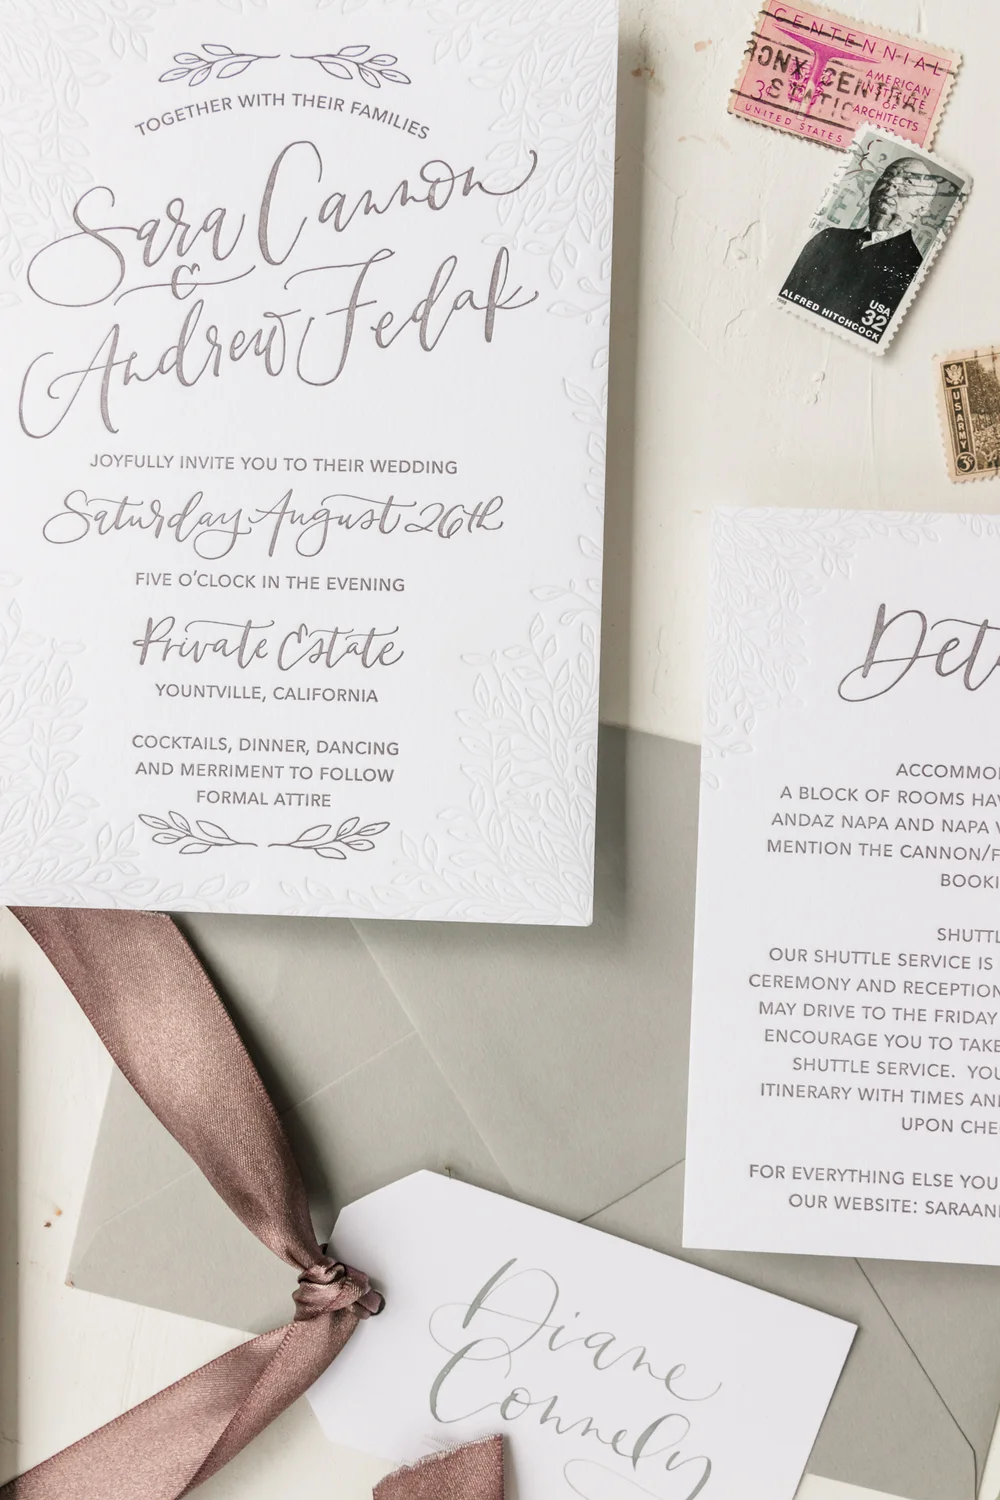 TOGETHER WITH THEIR FAMILIES
Sara Cannon
&
Andrew Fedak
JOYFULLY INVITE YOU TO THEIR WEDDING
Saturday August 26th
FIVE O'CLOCK IN THE EVENING
Private Estate
YOUNTVILLE, CALIFORNIA
COCKTAILS, DINNER, DANCING
AND MERRIMENT TO FOLLOW
FORMAL ATTIRE
CENTENNIAL
AMERICAN
INSTITUTE
OF
ARCHITECTS
3¢
UNITED STATES
CENTRAL
ALFRED HITCHCOCK
USA
32
US ARMY
3¢
A BLOCK OF ROOMS
ANDAZ NAPA AND NAPA
MENTION THE CANNON/F
OUR SHUTTLE SERVICE IS
CEREMONY AND RECEPTION
MAY DRIVE TO THE FRIDAY
ENCOURAGE YOU TO TAKE
SHUTTLE SERVICE. YOU
ITINERARY WITH TIMES AN
UPON CHE
FOR EVERYTHING ELSE YOU
OUR WEBSITE: SARAAN
Diane
Connely